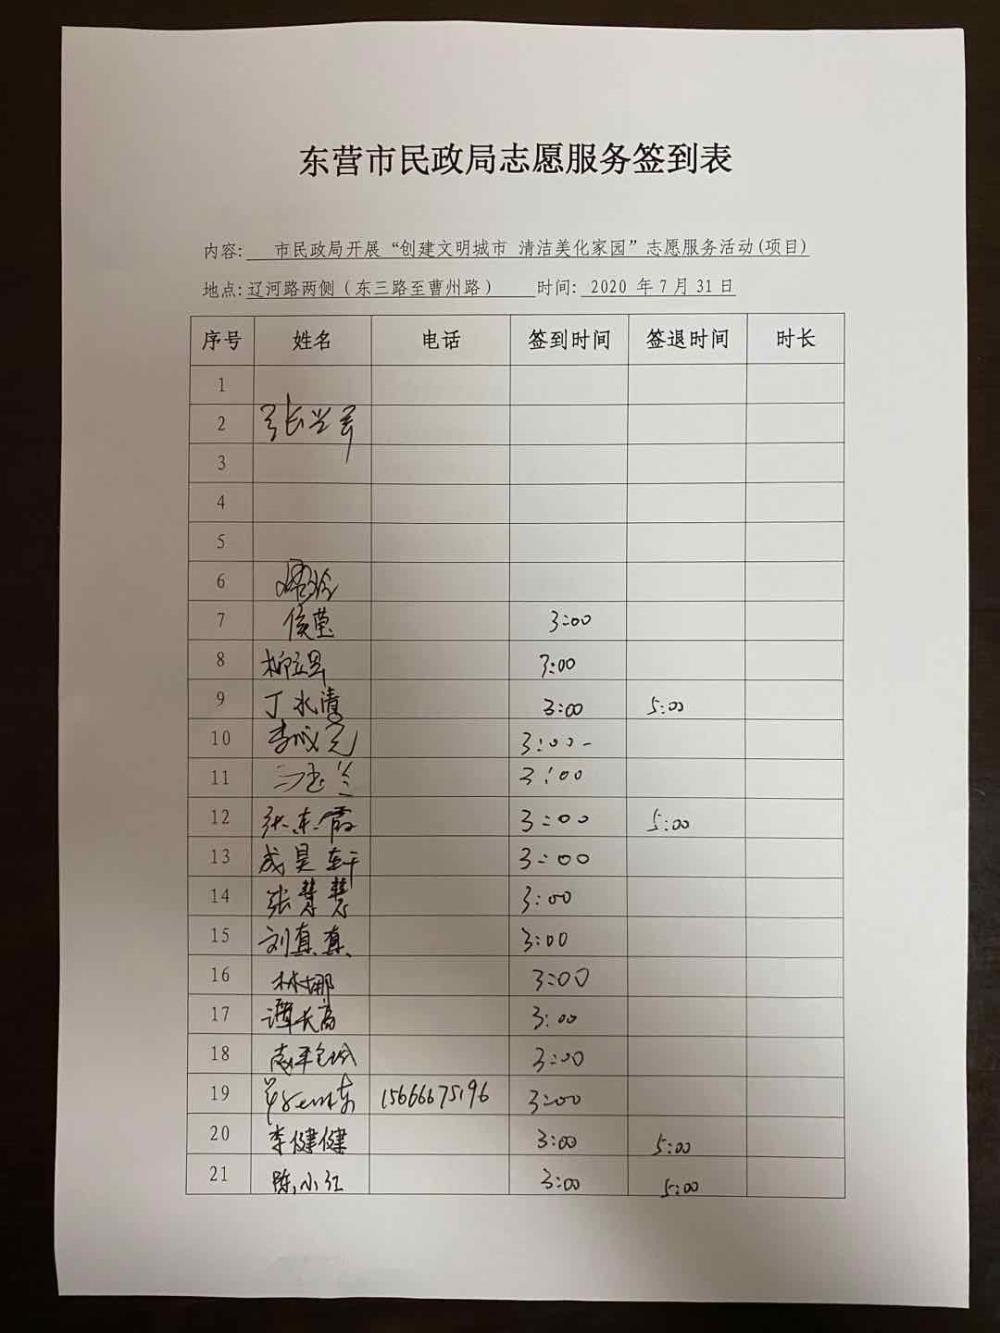 东营市民政局志愿服务签到表
内容: 市民政局开展“创建文明城市 清洁美化家园”志愿服务活动(项目)
地点:辽河路两侧(东三路至曹州路) 时间: 2020 年7月31日
序号 姓名 电话 签到时间 签退时间 时长
1
2 张兴
3
4
5
6
7 侯莹 3:00
8 柳 3:00
9 丁水清 3:00 5:00
10 李 3:00
11 兰 3:00
12 张东霞 3:00 5:00
13 成昊轩 3:00
14 张慧慧 3:00
15 刘真真 3:00
16 林娜 3:00
17 谭长高 3:00
18 3:00
19 15666675196 3:00
20 李健健 3:00 5:00
21 陈小红 3:00 5:00